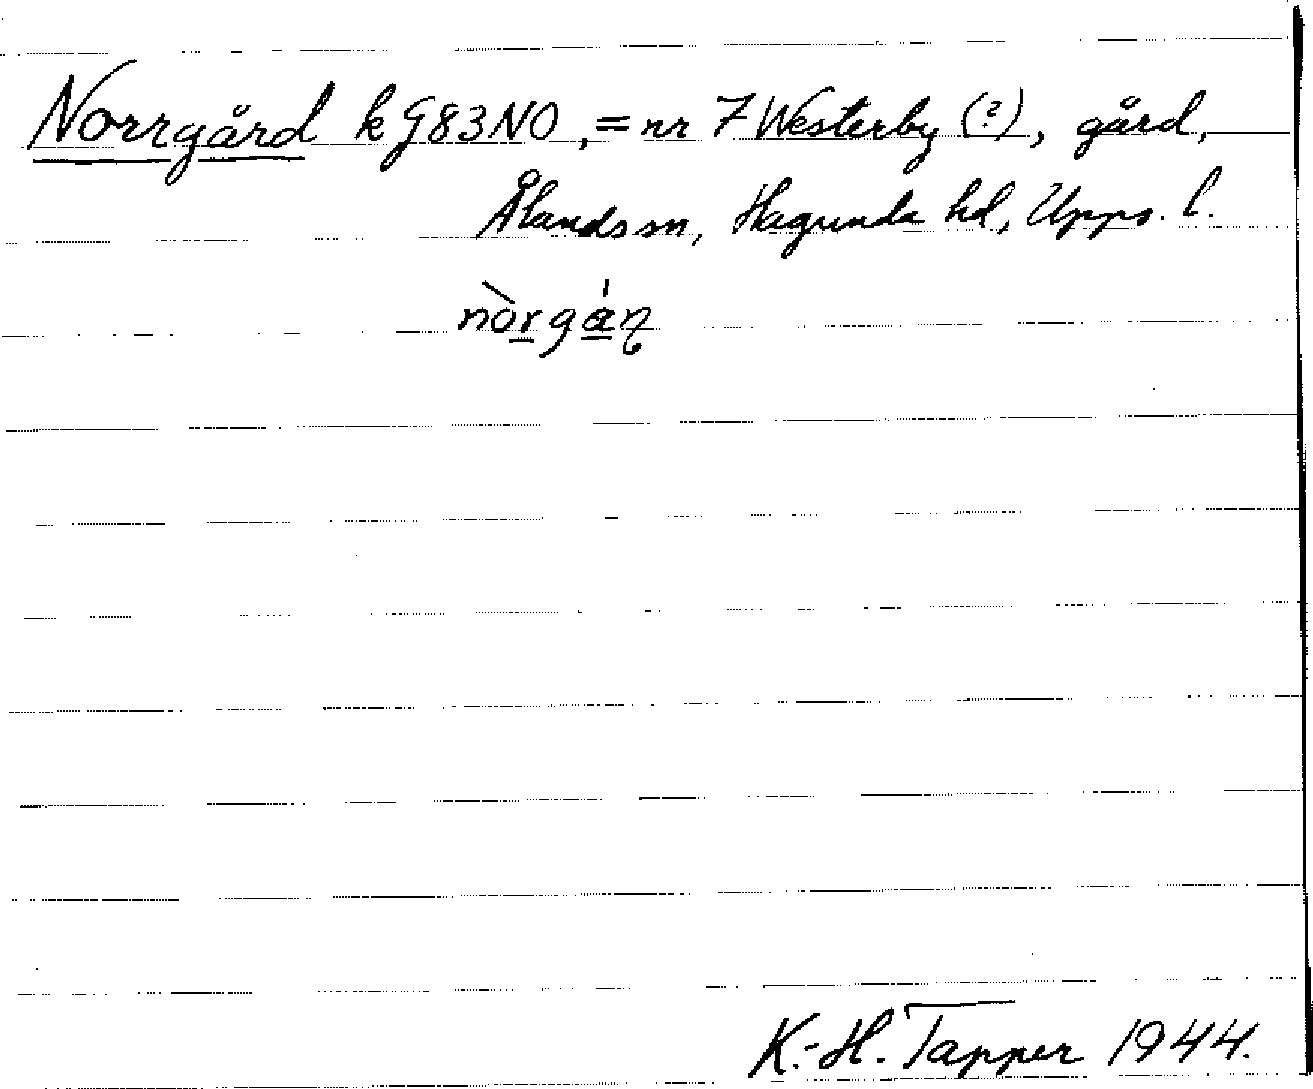 Norrgård k G83NO, = nr 7 Westerby (?), gård,
Ålands sn, Hagunda hd, Upps. l.
nòrgáɳ
K.-H. Tapper 1944.